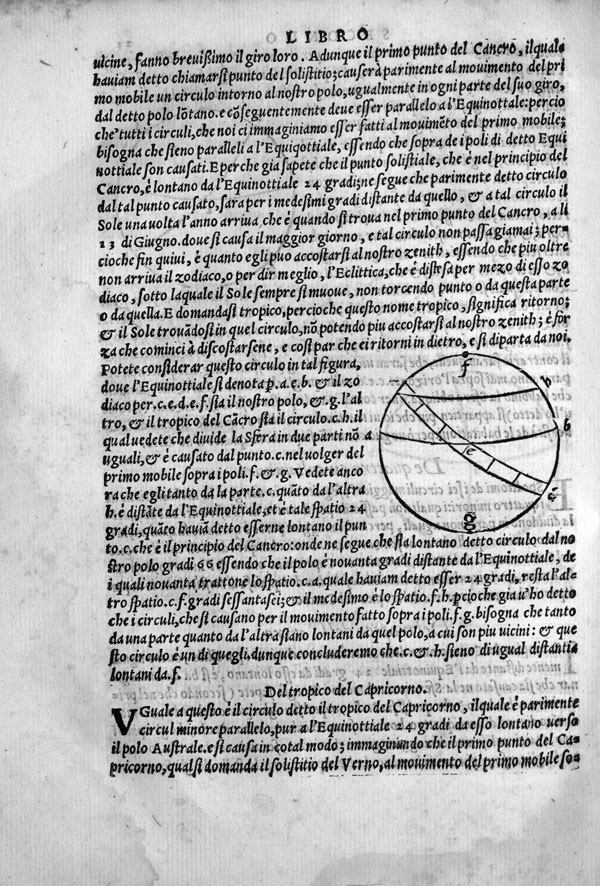 LIBRO
uicine, fanno breuißimo il giro loro. Adunque il primo punto del Cancro, il quale
hauiam detto chiamarsi punto del solistitio; causerà parimente al mouimento del pri
mo mobile un circulo intorno al nostro polo, ugualmente in ogni parte del suo giro,
dal detto polo lōtano. e cōseguentemente deue esser parallelo a l'Equinottale: percio
che tutti i circuli, che noi ci immaginiamo esser fatti al mouimēto del primo mobile;
bisogna che sieno paralleli a l'Equiqottiale, essendo che sopra de i poli di detto Equi
nottiale son causati. E perche gia sapete che il punto solistiale, che è nel principio del
Cancro, è lontano da l'Equinottiale 24 gradi; ne segue che parimente detto circulo
dal tal punto causato, sara per i medesimi gradi distante da quello, & a tal circulo il
Sole una uolta l'anno arriua, che è quando si troua nel primo punto del Cancro, a li
13 di Giugno. doue si causa il maggior giorno, e tal circulo non passa giamai; per-
cioche fin quiui, è quanto egli puo accostarsi al nostro zenith, essendo che piu oltre
non arriua il zodiaco, o per dir meglio, l'Eclittica, che è distesa per mezo di esso zo
diaco, sotto laquale il Sole sempre si muoue, non torcendo punto o da questa parte
o da quella. E domandasi tropico, percioche questo nome tropico, significa ritorno;
& il Sole trouādosi in quel circulo, nō potendo piu accostarsi al nostro zenith; è for
za che cominci à discostarsene, e cosi par che ei ritorni in dietro, e si diparta da noi.
Potete considerar questo circulo in tal figura,
doue l'Equinottiale si denota p. a.e.b. & il zo
diaco per.c.e.d.e.f. sia il nostro polo, & .g. l'al
tro, & il tropico del Cācro sia il circulo.c.h. il
qual uedete che diuide la Sfera in due parti nō
uguali, & è causato dal punto.c. nel uolger del
primo mobile sopra i poli.f. & .g. Vedete anco
ra che egli tanto da la parte.c. quāto da l'altra
h. è distāte da l'Equinottiale, et è tale spatio 24
gradi, quāto hauiā detto esserne lontano il pun
to.c. che è il principio del Cancro: onde ne segue che sia lontano detto circulo dal no
stro polo gradi 66 essendo che il polo è nouanta gradi distante da l'Equinottiale, de
i quali nouanta trattone lo spatio.c.a. quale hauiam detto esser 24 gradi, resta l'al-
tro spatio.c.f. gradi sessantasei; & il medesimo è lo spatio.f.h. pcioche gia u'ho detto
che i circuli, che si causano per il mouimento fatto sopra i poli.f.g. bisogna che tanto
da una parte quanto da l'altra siano lontani da quel polo, a cui son piu uicini: & que
sto circulo è un di quegli. dunque concluderemo che.c. & .h. sieno di ugual distantia
lontani da.f.
f
h
a
b
e
g
Del tropico del Capricorno.
VGuale a questo è il circulo detto il tropico del Capricorno, il quale è parimente
circul minore parallelo, pur a l'Equinottiale 24 gradi da esso lontano uerso
il polo Australe. e si causa in cotal modo; immaginando che il primo punto del Ca
pricorno, qual si domanda il solistitio del Verno, al mouimento del primo mobile so-